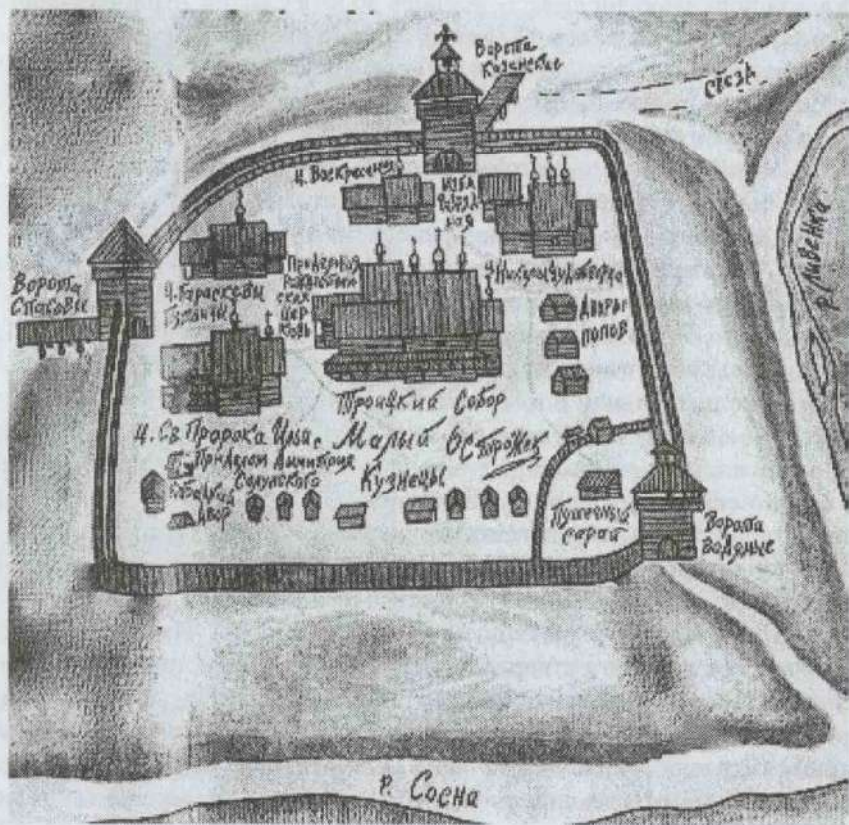 Ворота
Казанские
съезд
р. Ливенка
ц. Воскресения
изба
разряд
ная
Ворота
Спасовы
ц. Параскевы
Пятницы
Придельная
Рождествен
ская цер
ковь
ц. Николы Чудотворца
Дворы
попов
Троицкий Собор
ц. Св. Пророка Ильи с
приделом Дмитрия
Солунского
Малый Острожек
двор
Кузнецы
Пушечный
сарай
Ворота
водяные
р. Сосна